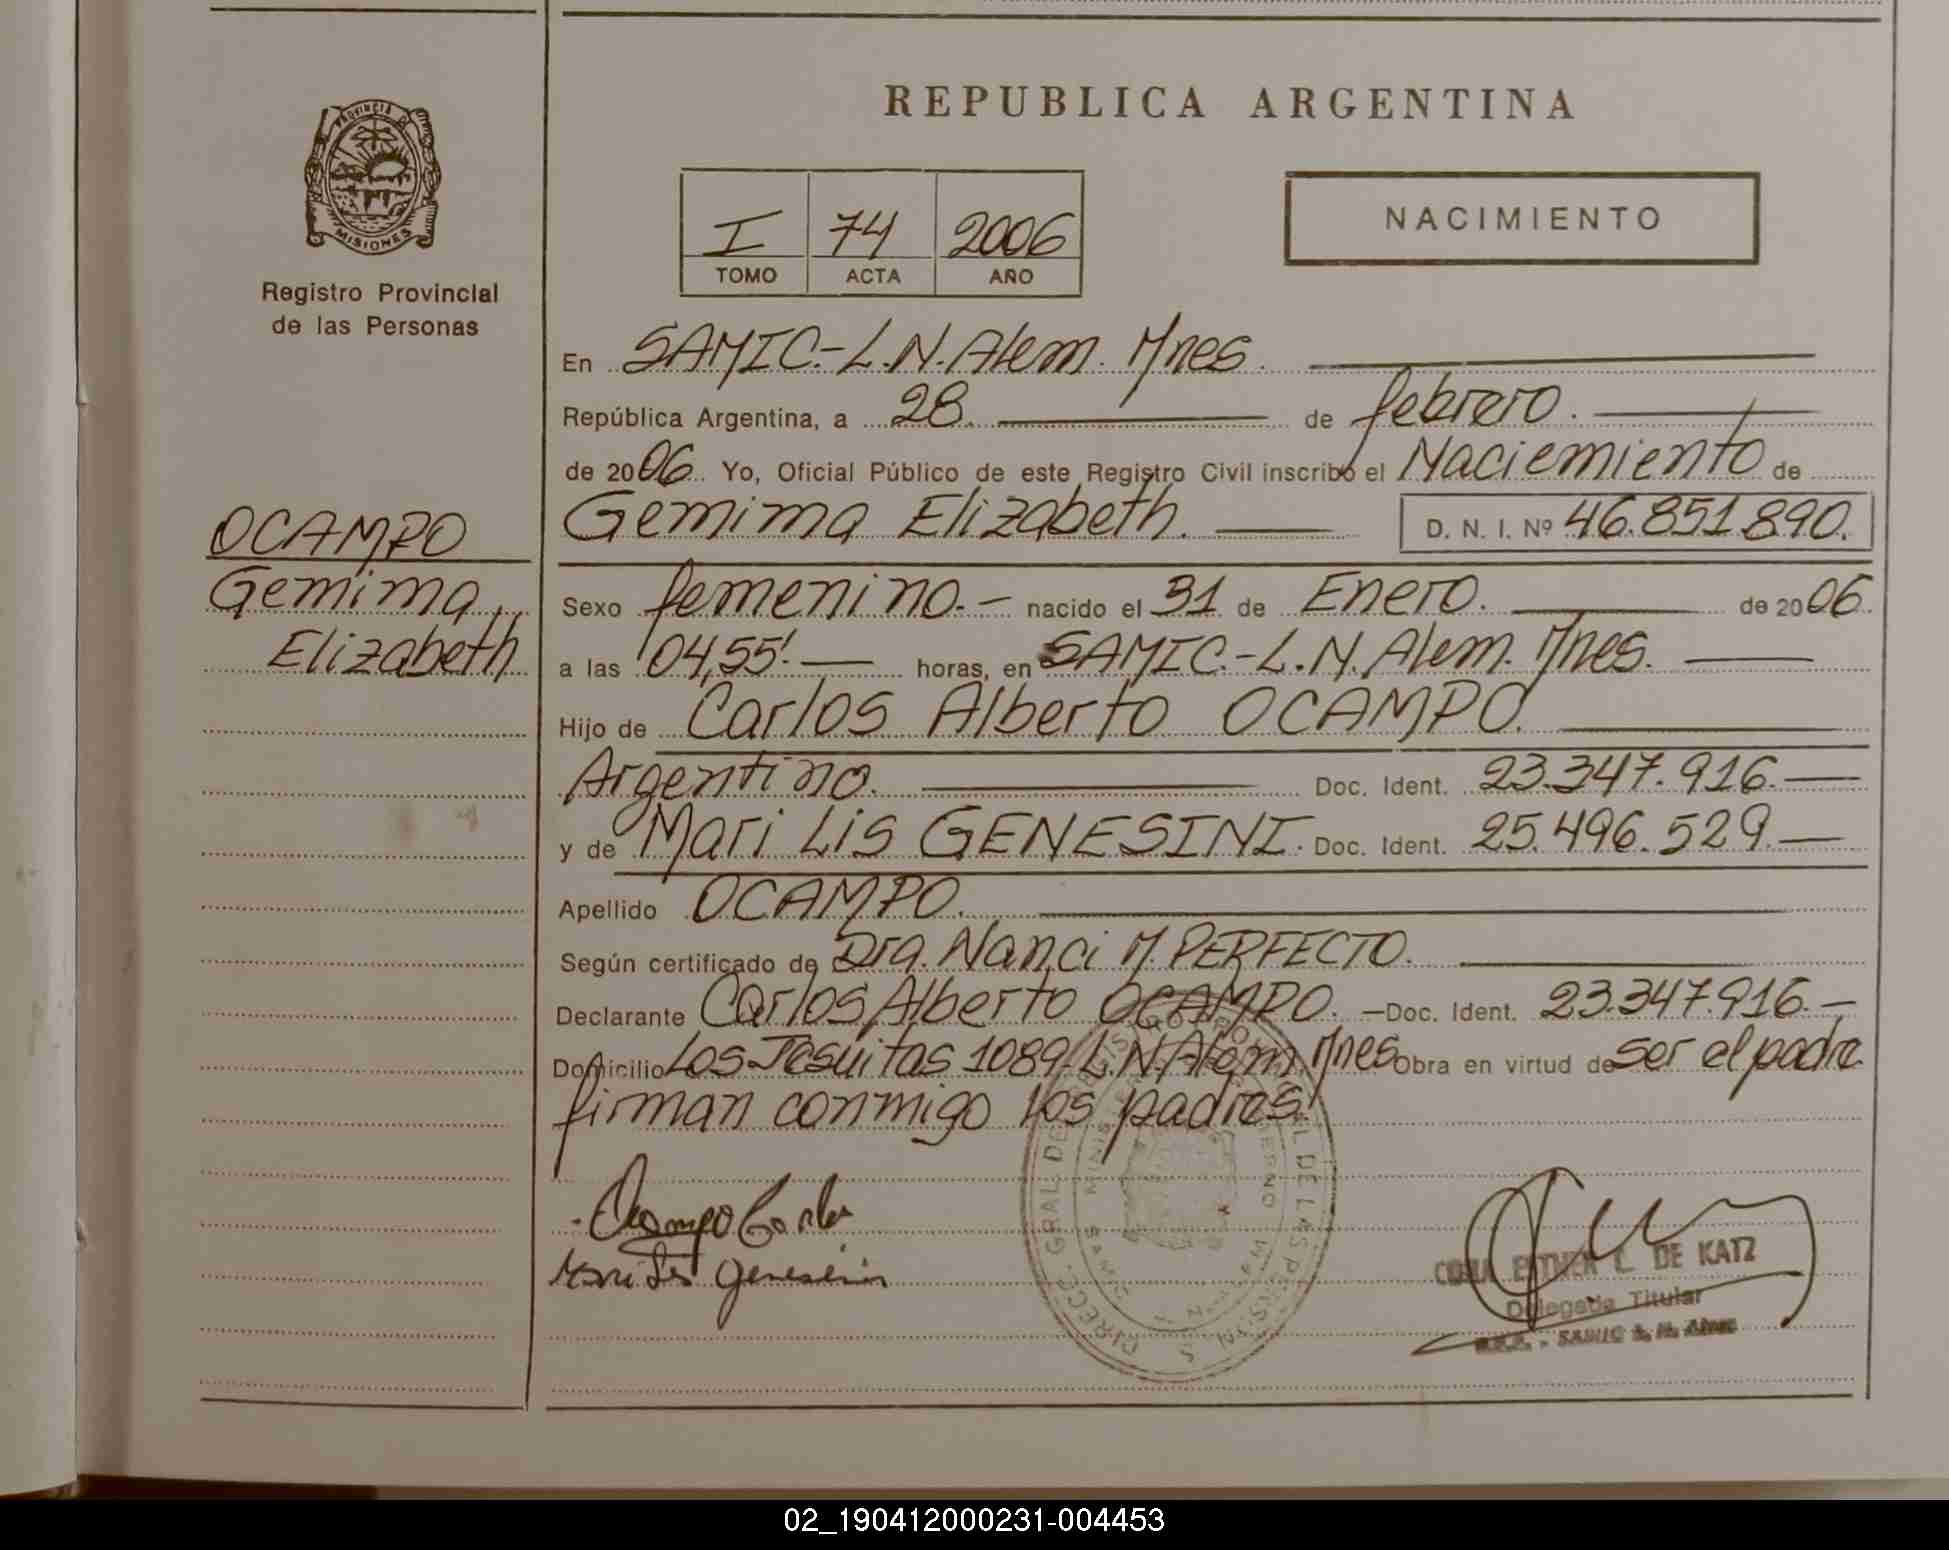 REPUBLICA ARGENTINA
PROVINCIA DE
MISIONES
Registro Provincial
de las Personas
I 74 2006
TOMO ACTA AÑO
NACIMIENTO
En SAMIC.-L.N.Alem. Mnes.
República Argentina, a 28. de febrero.
de 2006. Yo, Oficial Público de este Registro Civil inscribo el Naciemiento de
Gemima Elizabeth. D. N. I. Nº 46.851.890.
OCAMPO
Gemima
Elizabeth
Sexo femenino.- nacido el 31 de Enero. de 2006.
a las 04,55'. horas, en SAMIC.-L.N.Alem. Mnes.
Hijo de Carlos Alberto OCAMPO.
Argentino. Doc. Ident. 23.347.916.
y de Mari Lis GENESINI. Doc. Ident. 25.496.529.
Apellido OCAMPO.
Según certificado de Dra. Nanci M. PERFECTO.
Declarante Carlos Alberto OCAMPO. Doc. Ident. 23.347.916.
Domicilio Los Jesuitas 1089-L.N.Alem. Mnes Obra en virtud de ser el padre
firman conmigo los padres.
Ocampo Carlos
Mari Lis Genesini
ESTHER C. DE KATZ
Delegada Titular
R.P.P. - SAMIC L. N. Alem
02_190412000231-004453